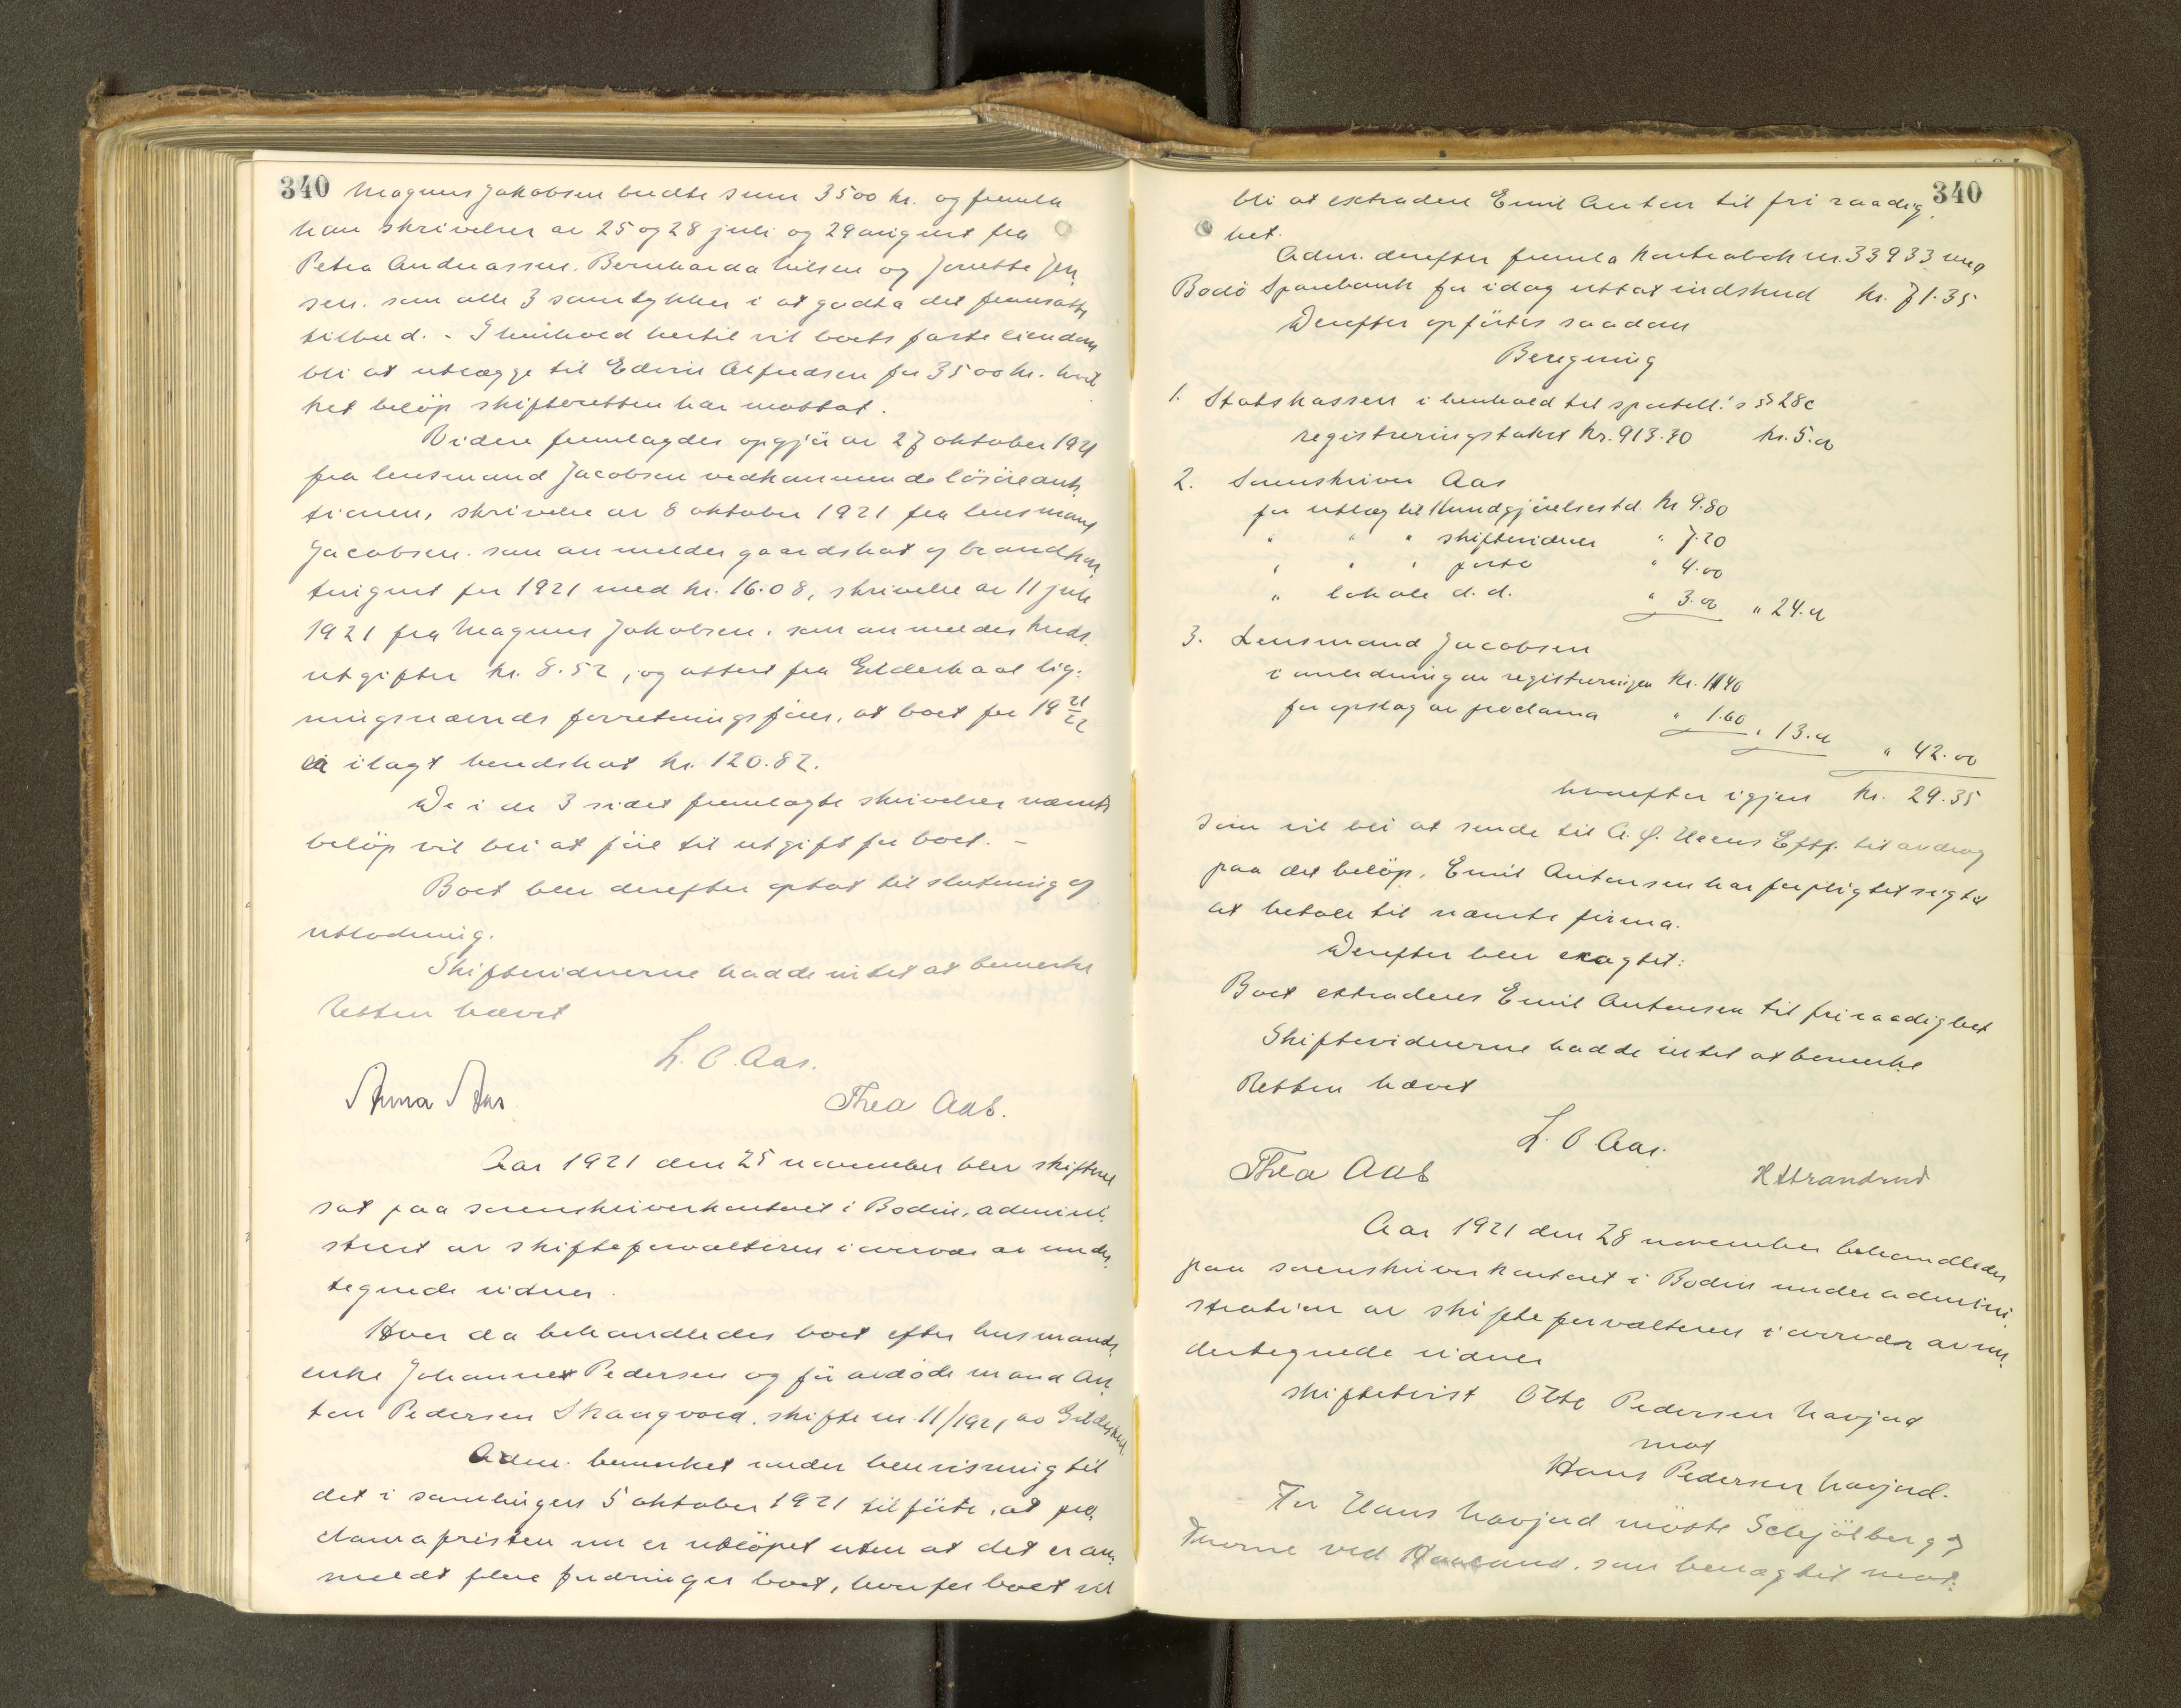 340 Magnus Jakobsen budte sum 3500 kr. og fremla
han skrivelser av 25 og 28 juli og 29 august fra
Petra Andreassen, Bernharda Nilsen og Jonette Jen,
sen. som alle 3 samtykker i at godta det fremsatte
tilbud. - I henhold hertil vil boets faste eiendom
bli at utlægge til Edvin Alfredsen for 3500 kr. hvil
ket beløp skifteretten har mottat.
Videre fremlagdes opgjør av 27 oktober 1921
fra lensmand Jacobsen vedkommende løsøreauk,
tionen, skrivelse av 8 oktober 1921 fra lensmand
Jacobsen. som anmelder gaardskat og brandkon,
tingent for 1921 med kr. 16.08, skrivelse av 11 juli
1921 fra Magnus Jakobsen. som anmelder
utgifter kr. 8.52, og attest fra Gildeskaal lig-
ningsnævnds forretningsfører, at boet for 19 21/22
er ilagt herredskat kr. 120.82.
De i de 3 sidst fremlagte skrivelser nævnte
beløp vil bli at føie til utgift for boet. -
Boet blev derefter optat til slutning og
utlodning.
Skiftevidnerne hadde intet at bemerke
Retten hævet
L. O. Aas.
Anna Aas
Thea Aas.
Aar 1921 den 25 november blev skifteret
sat paa sorenskriverkontoret i Bodin, admini,
strert av skifteforvalteren i overvær av under,
tegnede vidner.
Hvor da behandledes boet efter husmands,
enke Johanna Pedersen og før avdøde mand An,
ton Pedersen Skaugvold, skifte nr. 11/1921 av Gildeskaal.
Adm. bemerket under henvisning til
det i samlingen 5 oktober 1921 tilførte, at pro,
clamafristen nu er utløpet uten at det er an,
meldt flere fordringer boet, hvorfor boet vil
340
bli at extradere Emil Anton til fri raadig,
het.
Adm. derefter fremla kontrabok nr. 33933 med
Bodø Sparebank for idag uttat indskud kr. 71.35
Derefter opførtes saadan
Beregning
1. Statskassen i henhold til sportell.'s § 28c
registreringstakst kr. 913.30 kr. 5.00
2. Sorenskriver Aas
for utlæg til Kundgjørelsestd. kr 9.80
" " " skiftevidner " 7.20
" " " porto " 4.00
" lokale d. d. " 3.00 " 24.00
3. Lensmand Jacobsen
i anledning av registreringen kr. 11.40
for opslag av proclama " 1.60 " 13.00 " 42.00
hvorefter igjen kr. 29.35
som vil bli at sende til Eftf. til avdrag
paa det beløp, Emil Antonsen har forpligtet sig til
at betale til nævnte firma.
Derefter blev eragtet:
Boet extraderes Emil Antonsen til fri raadighet
Skiftevidnerne hadde intet at bemerke
Retten hævet
L. O Aas.
Thea Aas
H Strandrud
Aar 1921 den 28 november behandledes
paa sorenskriverkontoret i Bodin under admini,
stration av skifteforvalteren i overvær av un,
dertegnede vidner
skiftetvist Otto Pedersen Navjord
mot
Hans Pedersen Navjord.
For Hans Navjord møtte Schjölberg &
Thorne ved Haaland, som benægtet mot-